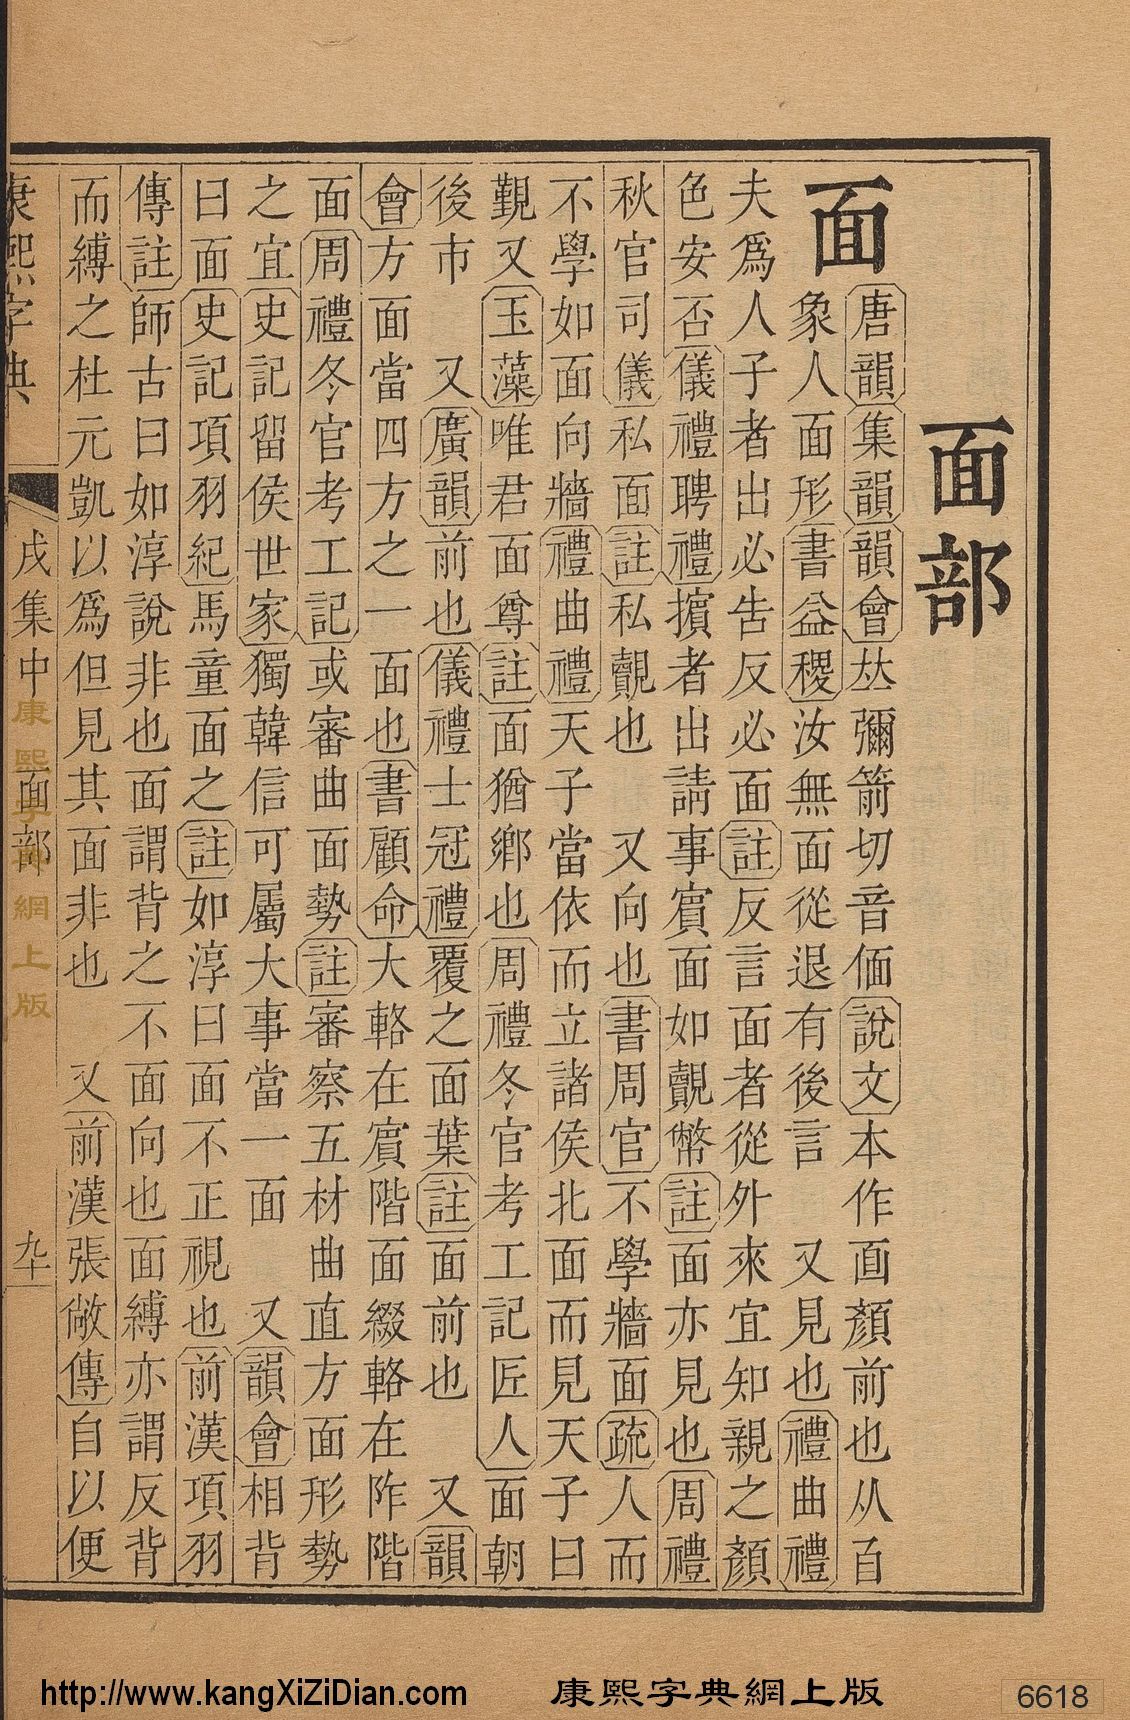 面部
面
唐韻集韻韻會𠀤彌箭切音偭說文本作𡇢顏前也从𦣻
象人面形書益稷汝無面從退有後言 又見也禮曲禮
夫爲人子者出必告反必面註反言面者從外來宜知親之顏
色安否儀禮聘禮擯者出請事賔面如覿幣註面亦見也周禮
秋官司儀私面註私覿也 又向也書周官不學牆面疏人而
不學如面向牆禮曲禮天子當依而立諸侯北面而見天子曰
覲又玉藻唯君面尊註面猶鄉也周禮冬官考工記匠人面朝
後市 又廣韻前也儀禮士冠禮覆之面葉註面前也 又韻
會方面當四方之一面也書顧命大輅在賔階面綴輅在阼階
面周禮冬官考工記或審曲面勢註審察五材曲直方面形勢
之宜史記留侯世家獨韓信可屬大事當一面 又韻會相背
曰面史記項羽紀馬童面之註如淳曰面不正視也前漢項羽
傳註師古曰如淳說非也面謂背之不面向也面縛亦謂反背
而縛之杜元凱以爲但見其面非也 又前漢張敞傳自以便
康熙字典 戌集中 面部 九十
康熙字典網上版
http://www.kangXiZiDian.com 康熙字典網上版 6618